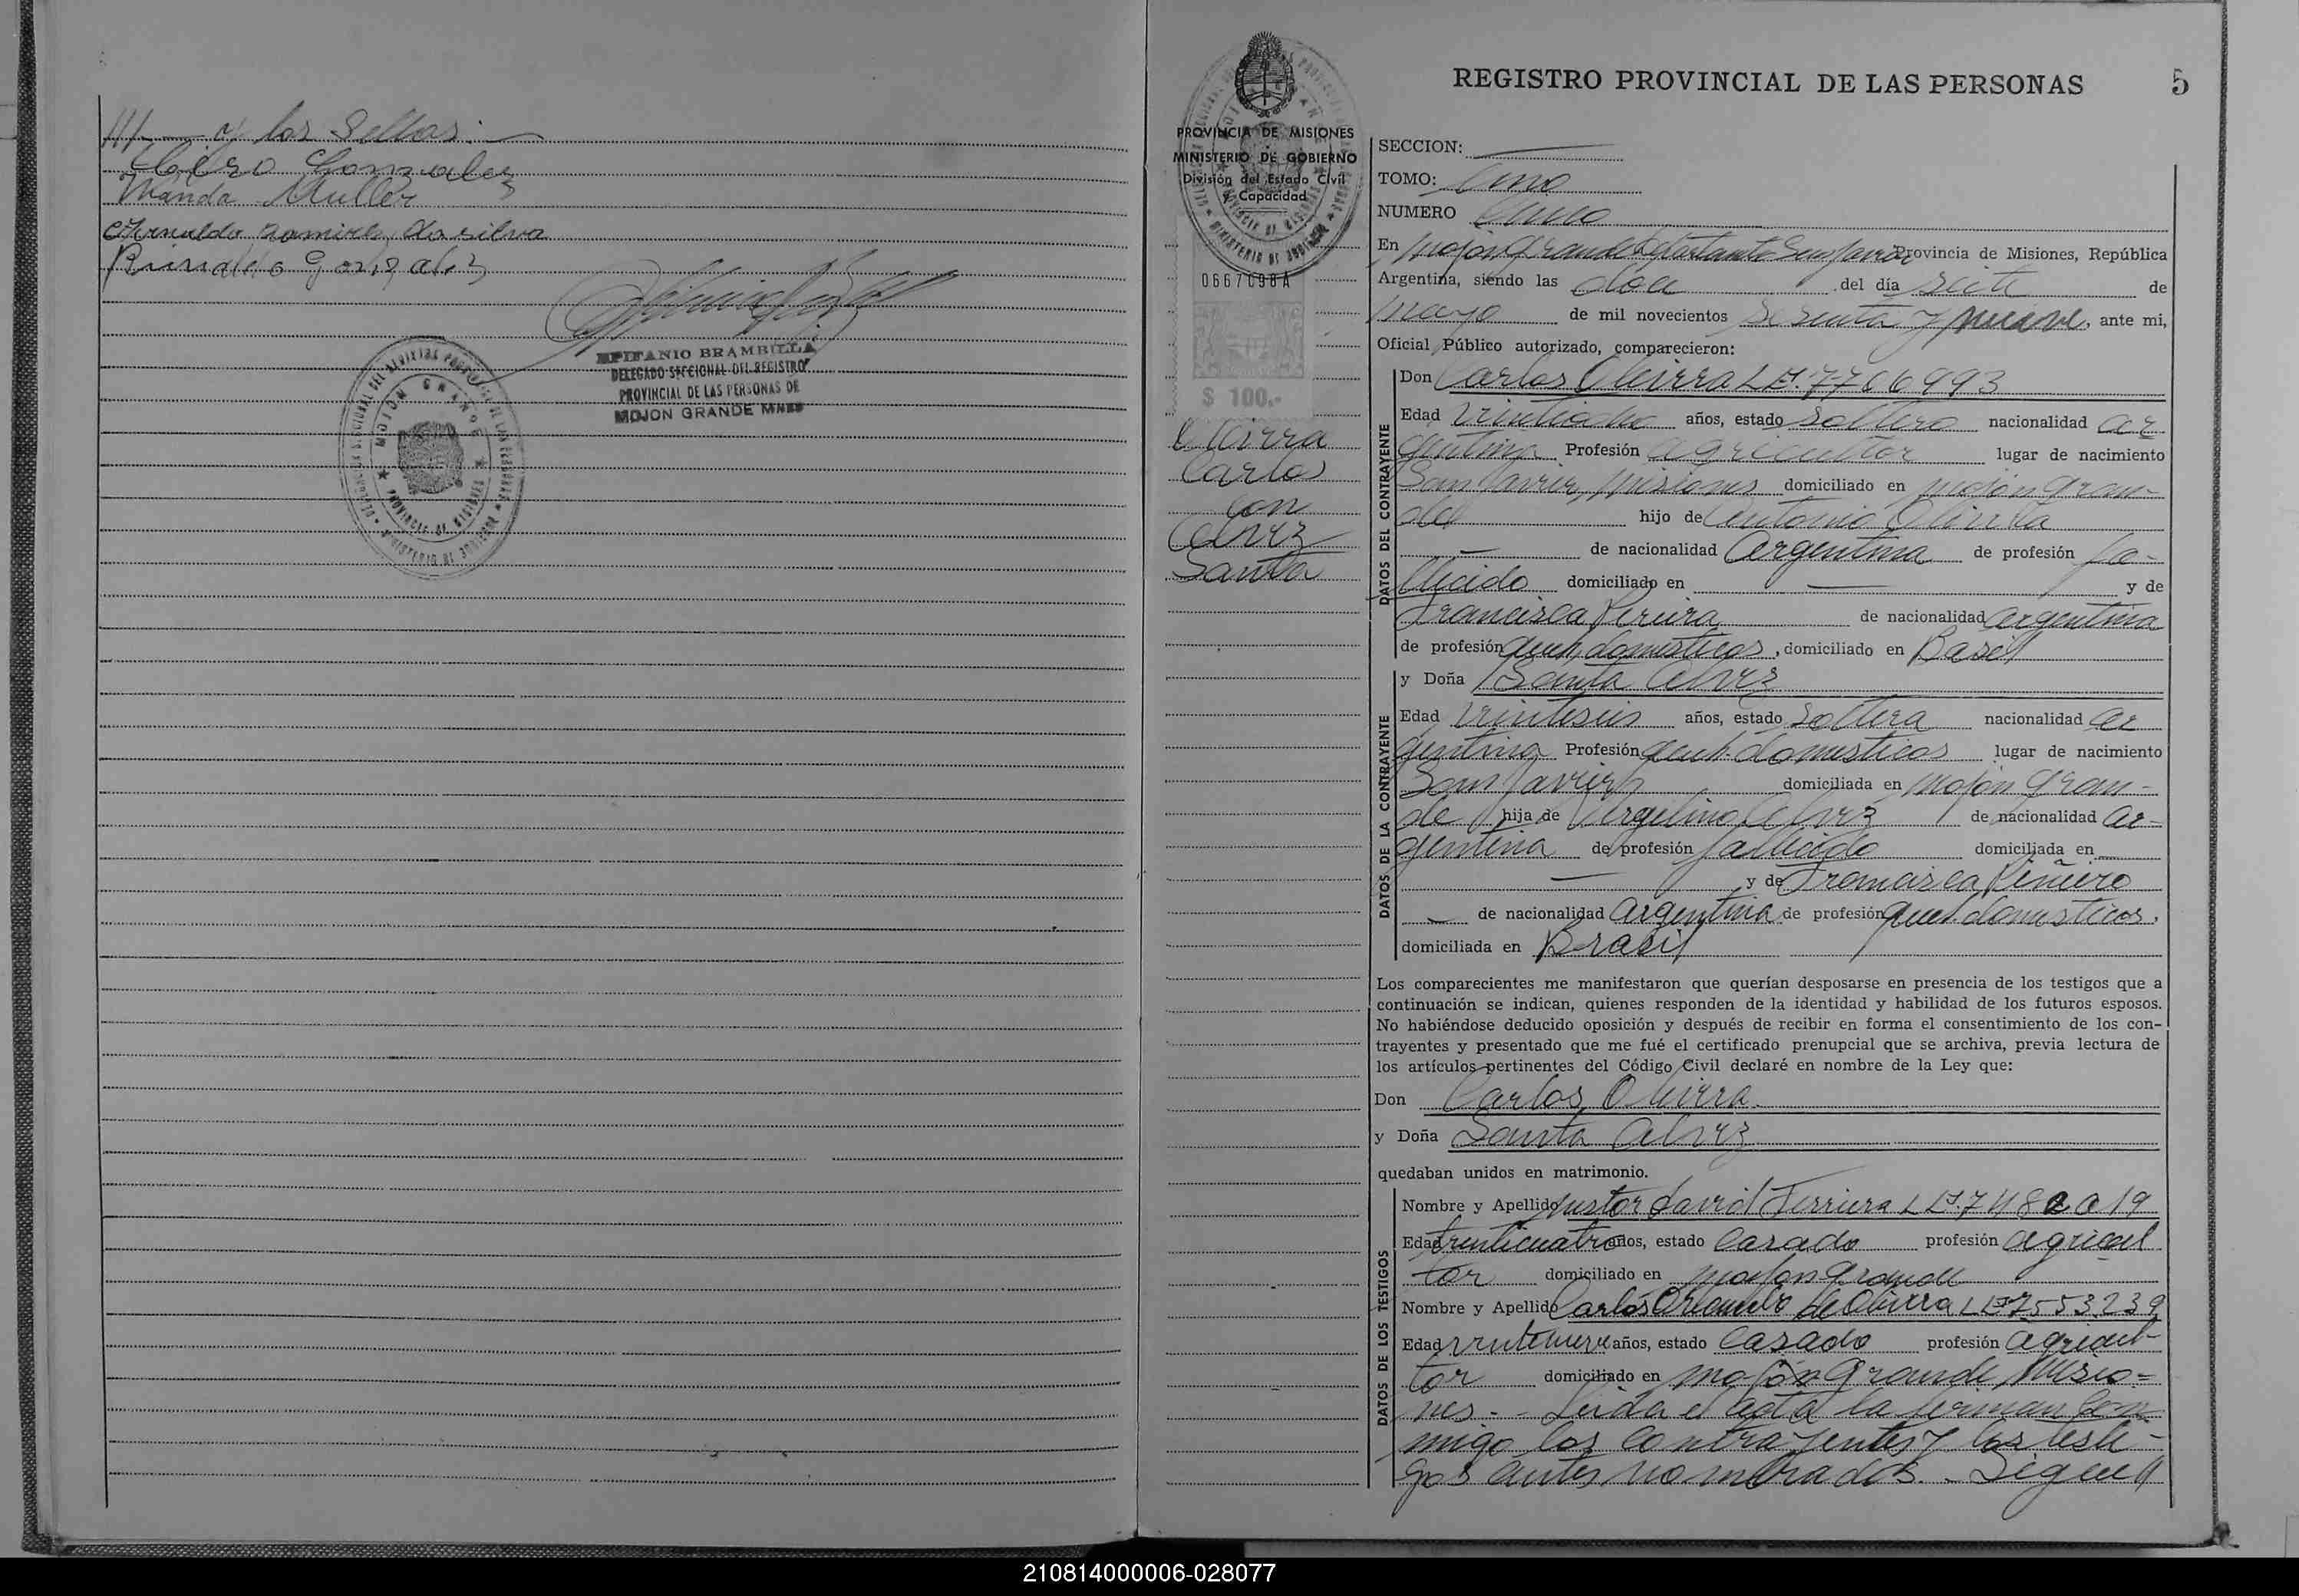 ///— y los Sellos.—
Pedro Gonzalez
Wanda Muller
Arnaldo Ramires da silva
Rinaldo Gonzalez
EPIFANIO BRAMBILLA
DELEGADO SECCIONAL DEL REGISTRO
PROVINCIAL DE LAS PERSONAS DE
MOJON GRANDE MNES
MOJON GRANDE
PROVINCIA DE MISIONES
REGISTRO PROVINCIAL DE LAS PERSONAS
5
PROVINCIA DE MISIONES
MINISTERIO DE GOBIERNO
División del Estado Civil
y Capacidad
0667698A
$ 100.-
Oliveira
Carlos
con
Alvez
Santa
SECCION: —
TOMO: Uno
NUMERO Cinco
En Mojón Grande Departamento San Javier Provincia de Misiones, República
Argentina, siendo las doce del día siete de
mayo de mil novecientos sesenta y nueve, ante mi,
Oficial Público autorizado, comparecieron:
DATOS DEL CONTRAYENTE
Don Carlos Oliveira L.E. 7766993
Edad veintiocho años, estado soltero nacionalidad ar
gentina Profesión agricultor lugar de nacimiento
San Javier, Misiones domiciliado en Mojón Gran-
de hijo de Antonio Oliveira
— de nacionalidad Argentina de profesión fa-
llecido domiciliado en — y de
Francisca Pereira de nacionalidad argentina
de profesión queh. domesticos, domiciliado en Basil
DATOS DE LA CONTRAYENTE
y Doña Santa Alvez
Edad veintiseis años, estado soltera nacionalidad ar
gentina Profesión queh. domesticos lugar de nacimiento
San Javier domiciliada en Mojón Gran-
de hija de Vergelino Alvez de nacionalidad ar-
gentina de profesión fallecido domiciliada en
— y de Francisca Piñeiro
— de nacionalidad argentina de profesión queh domesticos,
domiciliada en Brasil
Los comparecientes me manifestaron que querían desposarse en presencia de los testigos que a
continuación se indican, quienes responden de la identidad y habilidad de los futuros esposos.
No habiéndose deducido oposición y después de recibir en forma el consentimiento de los con-
trayentes y presentado que me fué el certificado prenupcial que se archiva, previa lectura de
los artículos pertinentes del Código Civil declaré en nombre de la Ley que:
Don Carlos Oliveira
y Doña Santa Alvez
quedaban unidos en matrimonio.
DATOS DE LOS TESTIGOS
Nombre y Apellido Nestor David Ferriera L.E. 7482019
Edad trenticuatro años, estado Casado profesión agricul
tor domiciliado en Mojón Grande
Nombre y Apellido Carlos Orlando de Oliveira L.E. 7553239
Edad veintinueve años, estado Casado profesión agricul-
tor domiciliado en Mojón Grande Misio=
nes.- Leida el acta la firman con
migo los contrayentes y los testi-
gos antes nombrados.- Sigue //
210814000006-028077